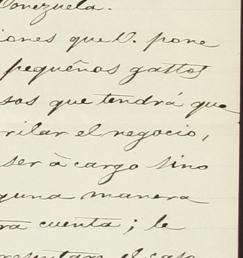 Venezuela.
iones que V. pone
pequeños gastos
sos que tendrá que
rilar el negocio,
ser á cargo sino
guna manera
ra cuenta; le
resentam el caso